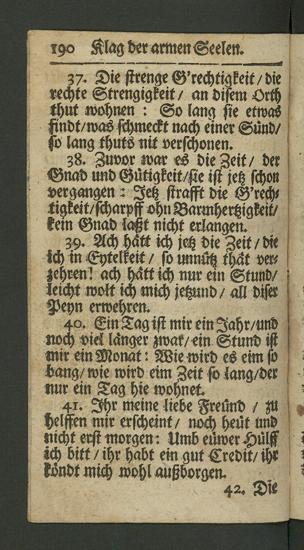 190 Klag der armen Seelen.
37. Die strenge G'rechtigkeit / die
rechte Strengigkeit / an disem Orth
thut wohnen : So lang sie etwas
findt / was schmeckt nach einer Sünd /
so lang thuts nit verschonen.
38. Zuvor war es die Zeit / der
Gnad und Gütigkeit / sie ist jetz schon
vergangen : Jetz strafft die G'rech-
tigkeit / scharpff ohn Barmhertzigkeit /
kein Gnad laßt nicht erlangen.
39. Ach hätt ich jetz die Zeit / die
ich in Eytelkeit / so unnütz thät ver-
zehren! ach hätt ich nur ein Stund /
leicht wolt ich mich jetzund / all diser
Peyn erwehren.
40. Ein Tag ist mir ein Jahr / und
noch viel länger zwar / ein Stund ist
mir ein Monat : Wie wird es eim so
bang / wie wird eim Zeit so lang / der
nur ein Tag hie wohnet.
41. Ihr meine liebe Freünd / zu
helffen mir erscheint / noch heüt und
nicht erst morgen : Umb eüwer Hülff
ich bitt / ihr habt ein gut Credit / ihr
köndt mich wohl außborgen.
42. Die